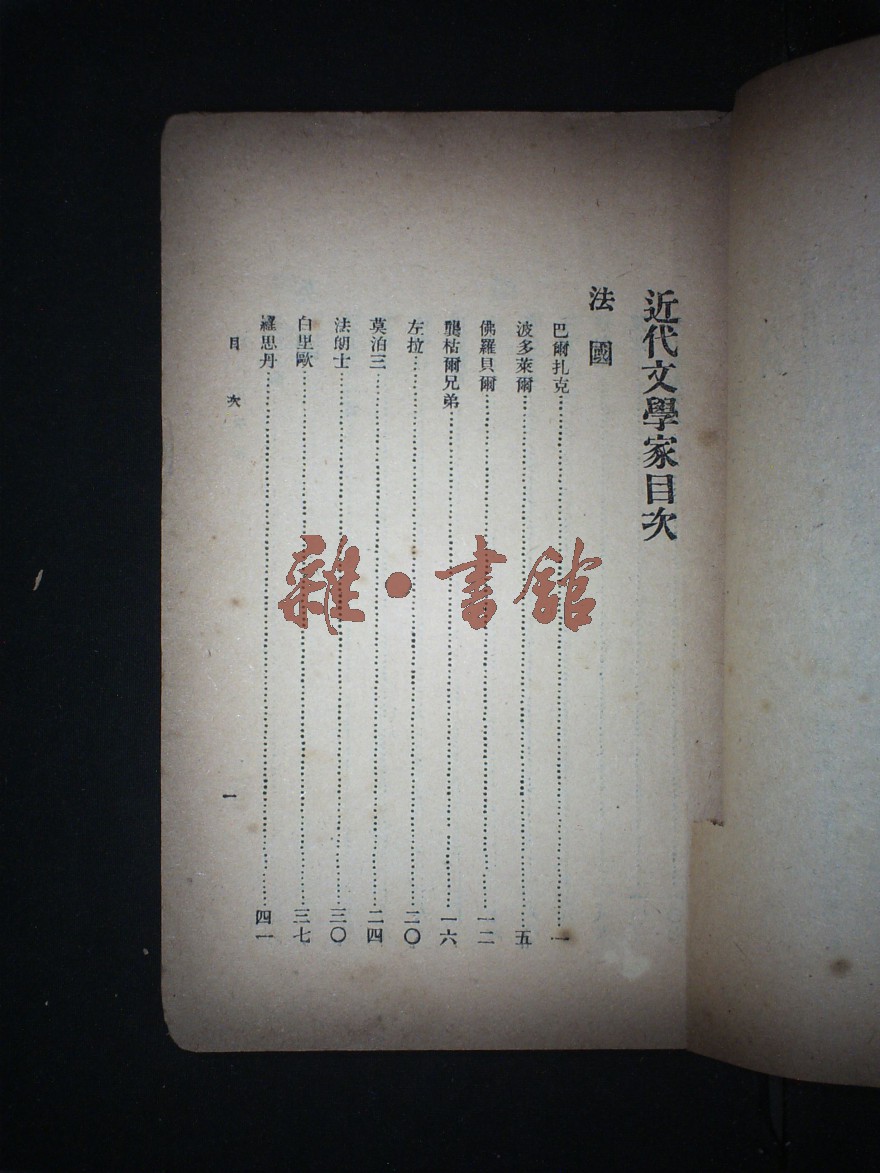 近代文學家目次
法國
巴爾扎克……一
波多萊爾……五
佛羅貝爾……一二
龔枯爾兄弟……一六
左拉……二〇
莫泊三……二四
法朗士……三〇
白里歐……三七
羅思丹……四一
目次
一
雜·書館